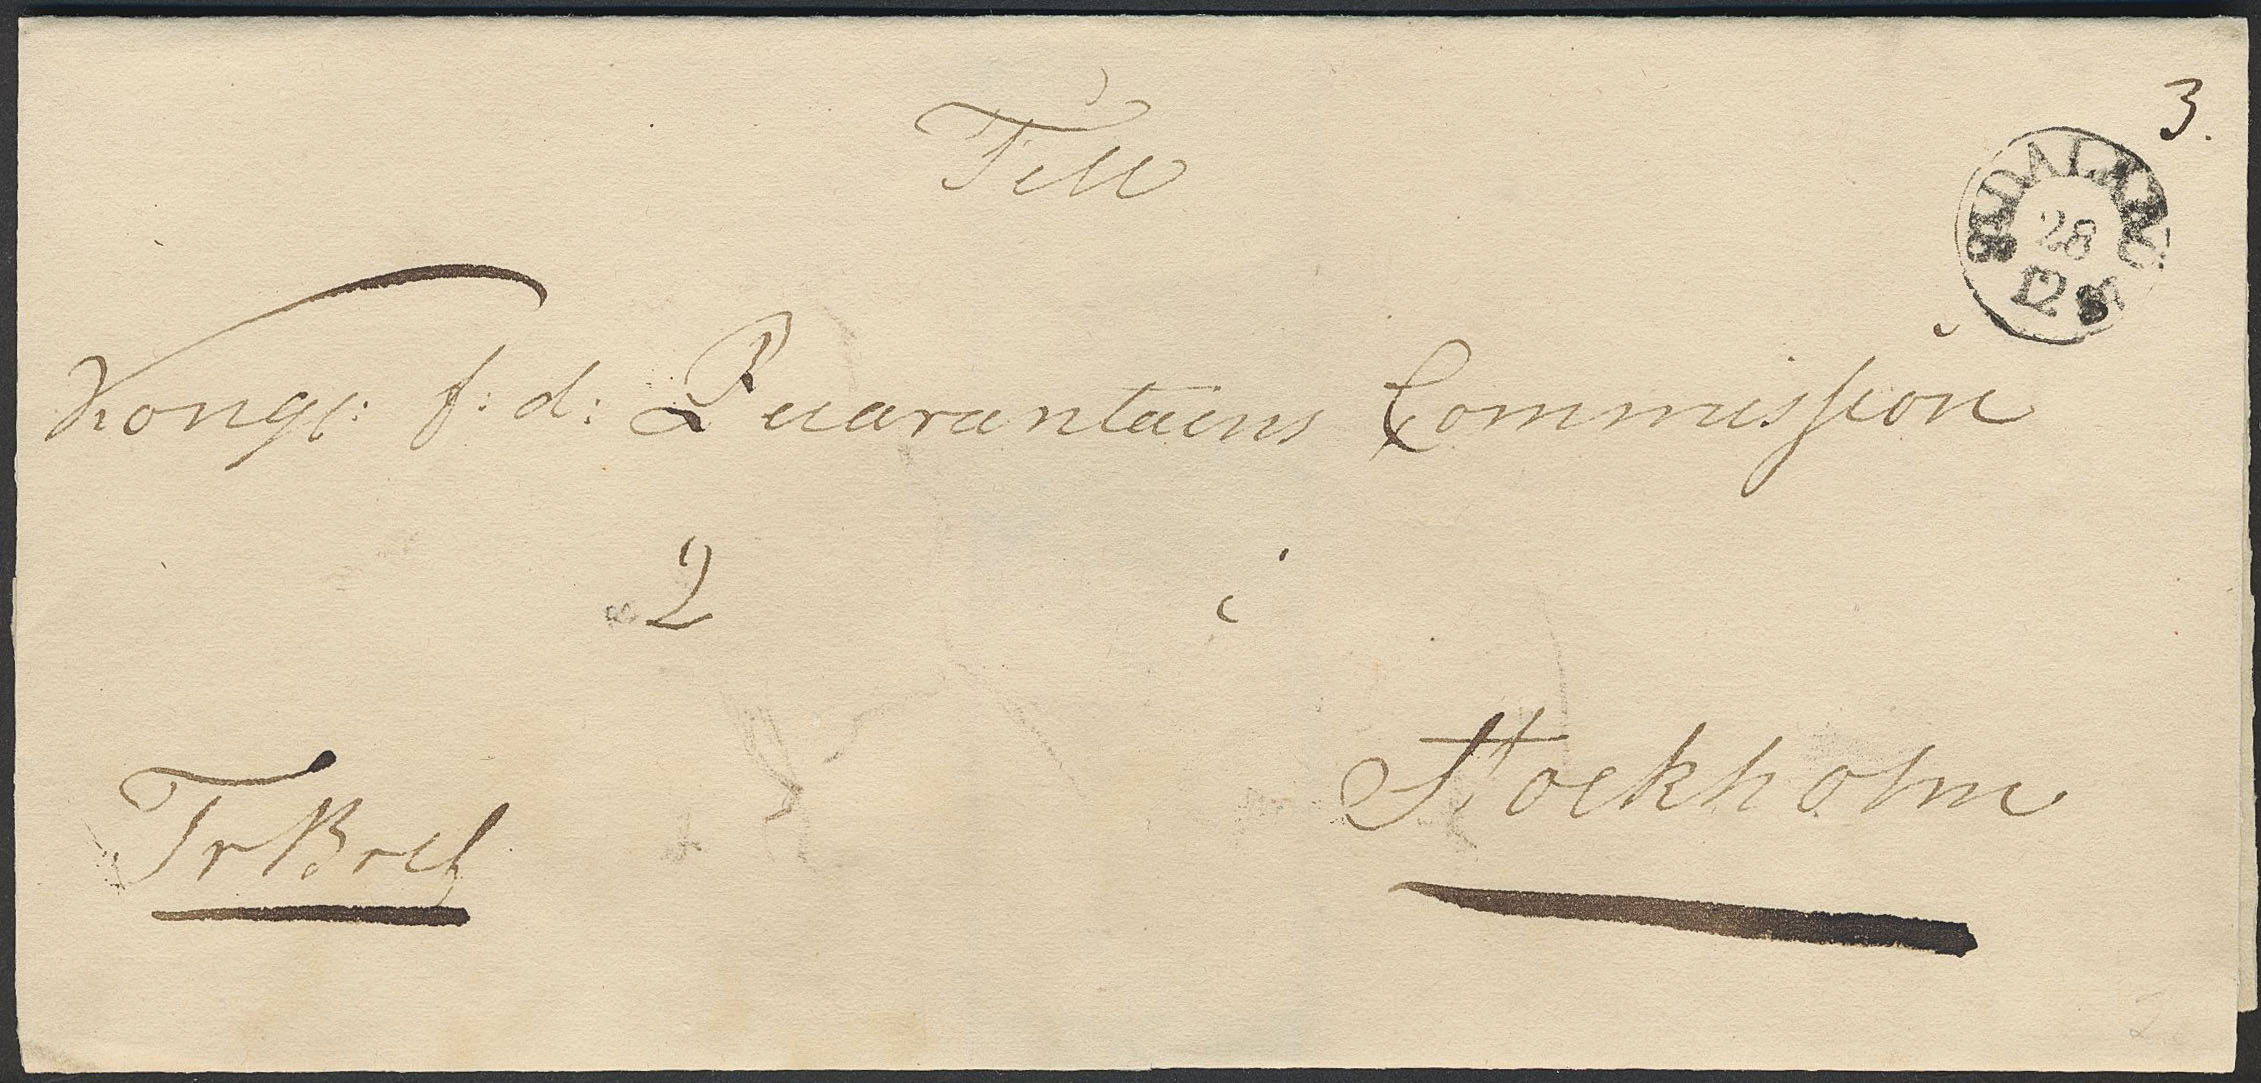 3.
Till
28
12
Kongl: f: d: Quarantains Commission
2 i
Stockholm
Tr Bref